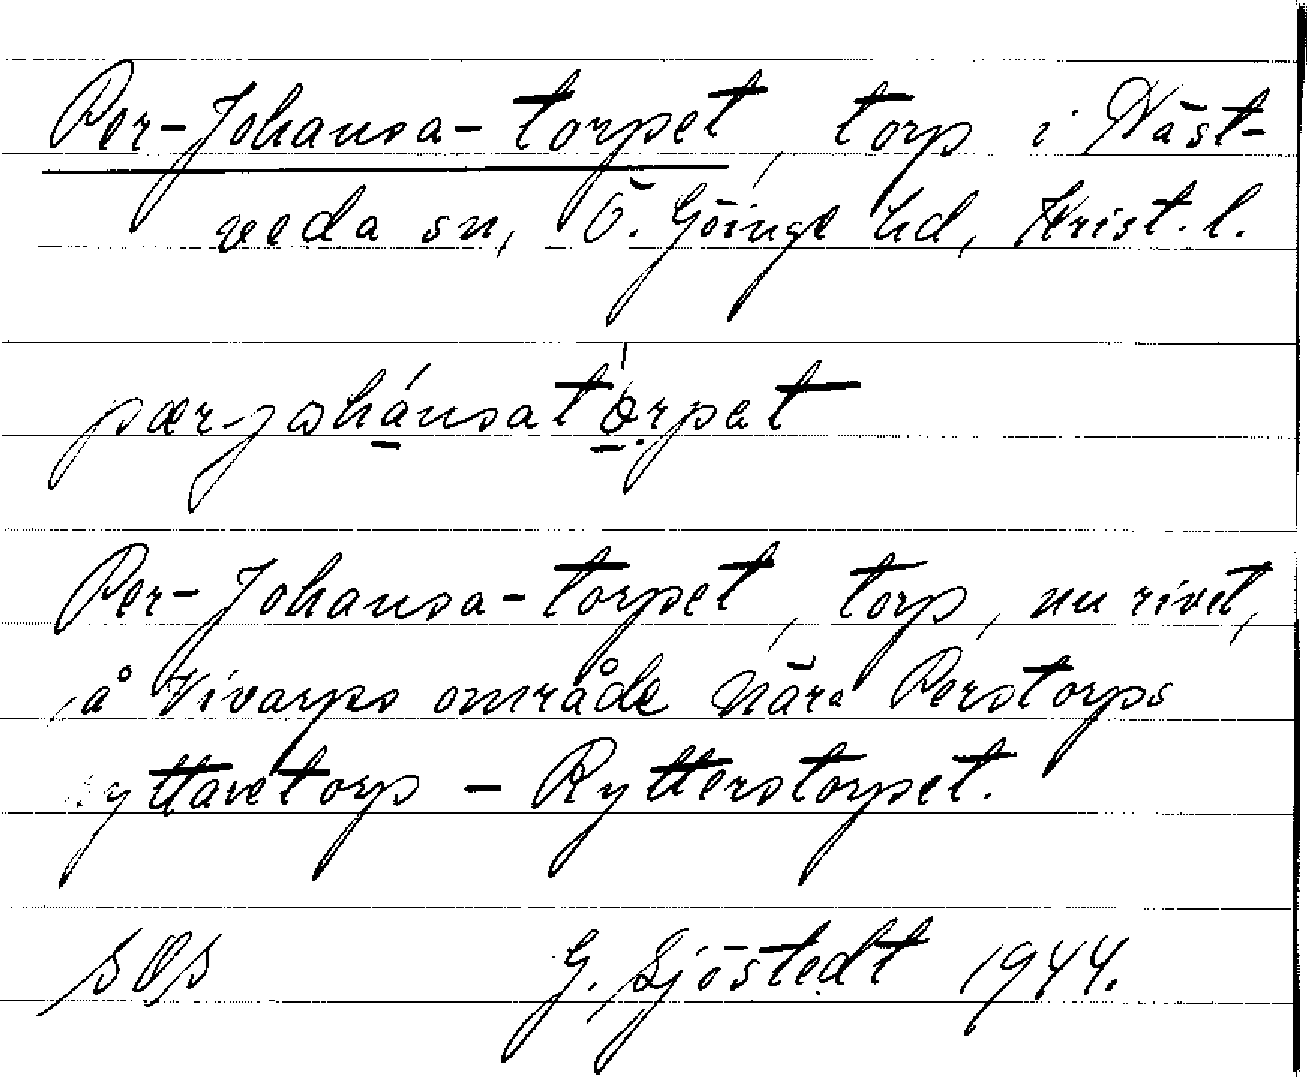 Per-Johansa-torpet, torp i Näst-
veda sn, Ö. Göinge hd, Krist. l.
pær-johánsatórpet
Per-Johansa-torpet, torp, nu rivet,
å Vivarps område nära Perstorps
ryttaretorp – Rytterstorpet.
SOS G. Sjöstedt 1944.